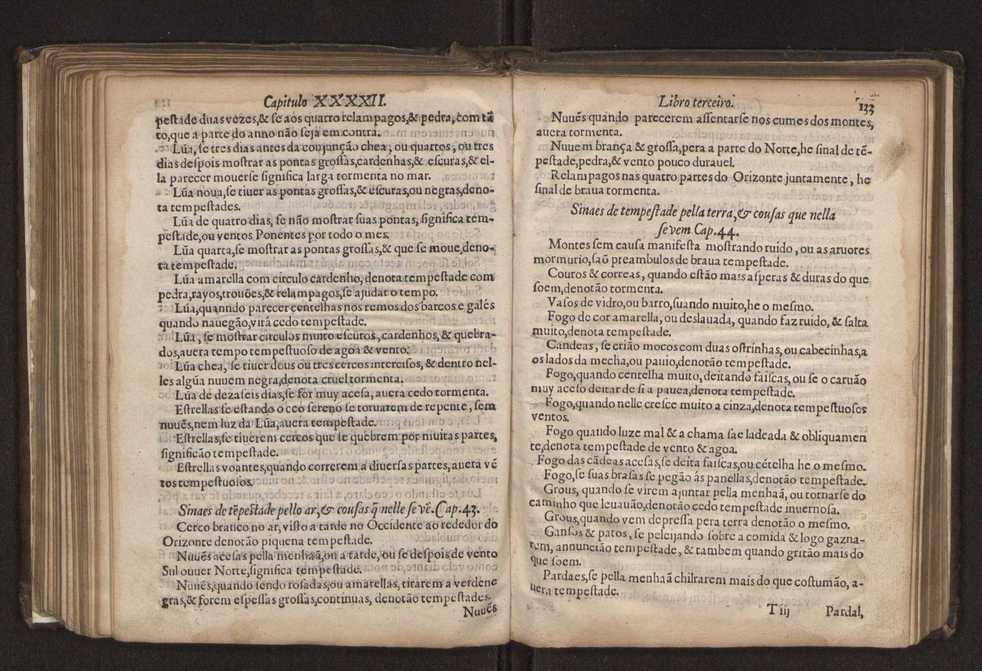 Capitulo XXXXII.
pestade duas vezes,& se aos quatro relampagos,& pedra, com tã
to,que a parte do anno não seja em contra.
Lũa, se tres dias antes da conjunção chea, ou quartos, ou tres
dias despois mostrar as pontas grossas,cardenhas,& escuras,& el-
la parecer mouerse significa larga tormenta no mar.
Lũa noua,se tiuer as pontas grossas,& escuras,ou negras,deno-
ta tempestades.
Lũa de quatro dias, se não mostrar suas pontas, significa tem-
pestade,ou ventos Ponentes por todo o mes.
Lũa quarta,se mostrar as pontas grossas,& que se moue,deno-
ta tempestade.
Lũa amarella com circulo cardenho, denota tempestade com
pedra,rayos,trouões,& relampagos,se ajudar o tempo.
Lũa,quanndo parecer centelhas nos remos dos barcos e galès
quando nauegão,virà cedo tempestade.
Lũa, se mostrar circulos muito escuros, cardenhos, & quebra-
dos,auera tempo tempestuoso de agoa & vento.
Lũa chea, se tiuer dous ou tres cercos intercisos, & dentro nel-
les algũa nuuem negra,denota cruel tormenta.
Lũa de dezaseis dias,se for muy acesa, auera cedo tormenta.
Estrellas se estando o ceo sereno se toruarem de repente, sem
nuuẽs,nem luz da Lũa,auera tempestade.
Estrellas,se tiuerem cercos que se quebrem por muitas partes,
significão tempestade.
Estrellas voantes,quando correrem a diuersas partes,auera vẽ
tos tempestuosos.
Sinaes de tẽpestade pello ar,& cousas q̃ nelle se vẽ.Cap.43.
Cerco branco no ar,visto a tarde no Occidente ao rededor do
Orizonte denotão piquena tempestade.
Nuuẽs acesas pella menhaã,ou a tarde, ou se despois de vento
Sul ouuer Norte,significa tempestade.
Nuuẽs,quando sendo rosadas,ou amarellas, tirarem a verdene
gras,& forem espessas grossas,continuas, denotão tempestades.
Nuuẽs
Libro terceiro.
133
Nuuẽs quando parecerem assentarse nos cumes dos montes,
auera tormenta.
Nuuem branca & grossa,pera a parte do Norte,he sinal de tẽ-
pestade,pedra,& vento pouco durauel.
Relampagos nas quatro partes do Orizonte juntamente, he
sinal de braua tormenta.
Sinaes de tempestade pella terra,& cousas que nella
se vem Cap.44.
Montes sem causa manifesta mostrando ruido, ou as aruores
mormurio,saõ preambulos de braua tempestade.
Couros & correas, quando estão mais asperas & duras do que
soem,denotão tormenta.
Vasos de vidro,ou barro,suando muito,he o mesmo.
Fogo de cor amarella, ou deslauada, quando faz ruido, & salta
muito,denota tempestade.
Candeas, se crião mocos com duas ostrinhas, ou cabecinhas,a
os lados da mecha,ou pauio,denotão tempestade.
Fogo,quando centelha muito, deitando faiscas,ou se o caruão
muy aceso deitar de si a pauea,denota tempestade.
Fogo,quando nelle cresce muito a cinza,denota tempestuosos
ventos.
Fogo quando luze mal & a chama sae ladeada & obliquamen
te,denota tempestade de vento & agoa.
Fogo das cãdeas acesas,se deita faiscas,ou cẽtelha he o mesmo.
Fogo,se suas brasas se pegão às panellas,denotão tempestade.
Grous, quando se virem ajuntar pella menhaã, ou tornarse do
caminho que leuauão,denotão cedo tempestade inuernosa.
Grous,quando vem depressa pera terra denotão o mesmo.
Gansos & patos, se pelejando sobre a comida & logo gazna-
rem, annuncião tempestade, & tambem quando gritão mais do
que soem.
Pardaes,se pella menhaã chilrarem mais do que costumão, a-
uera tempestade.
T iij
Pardal,